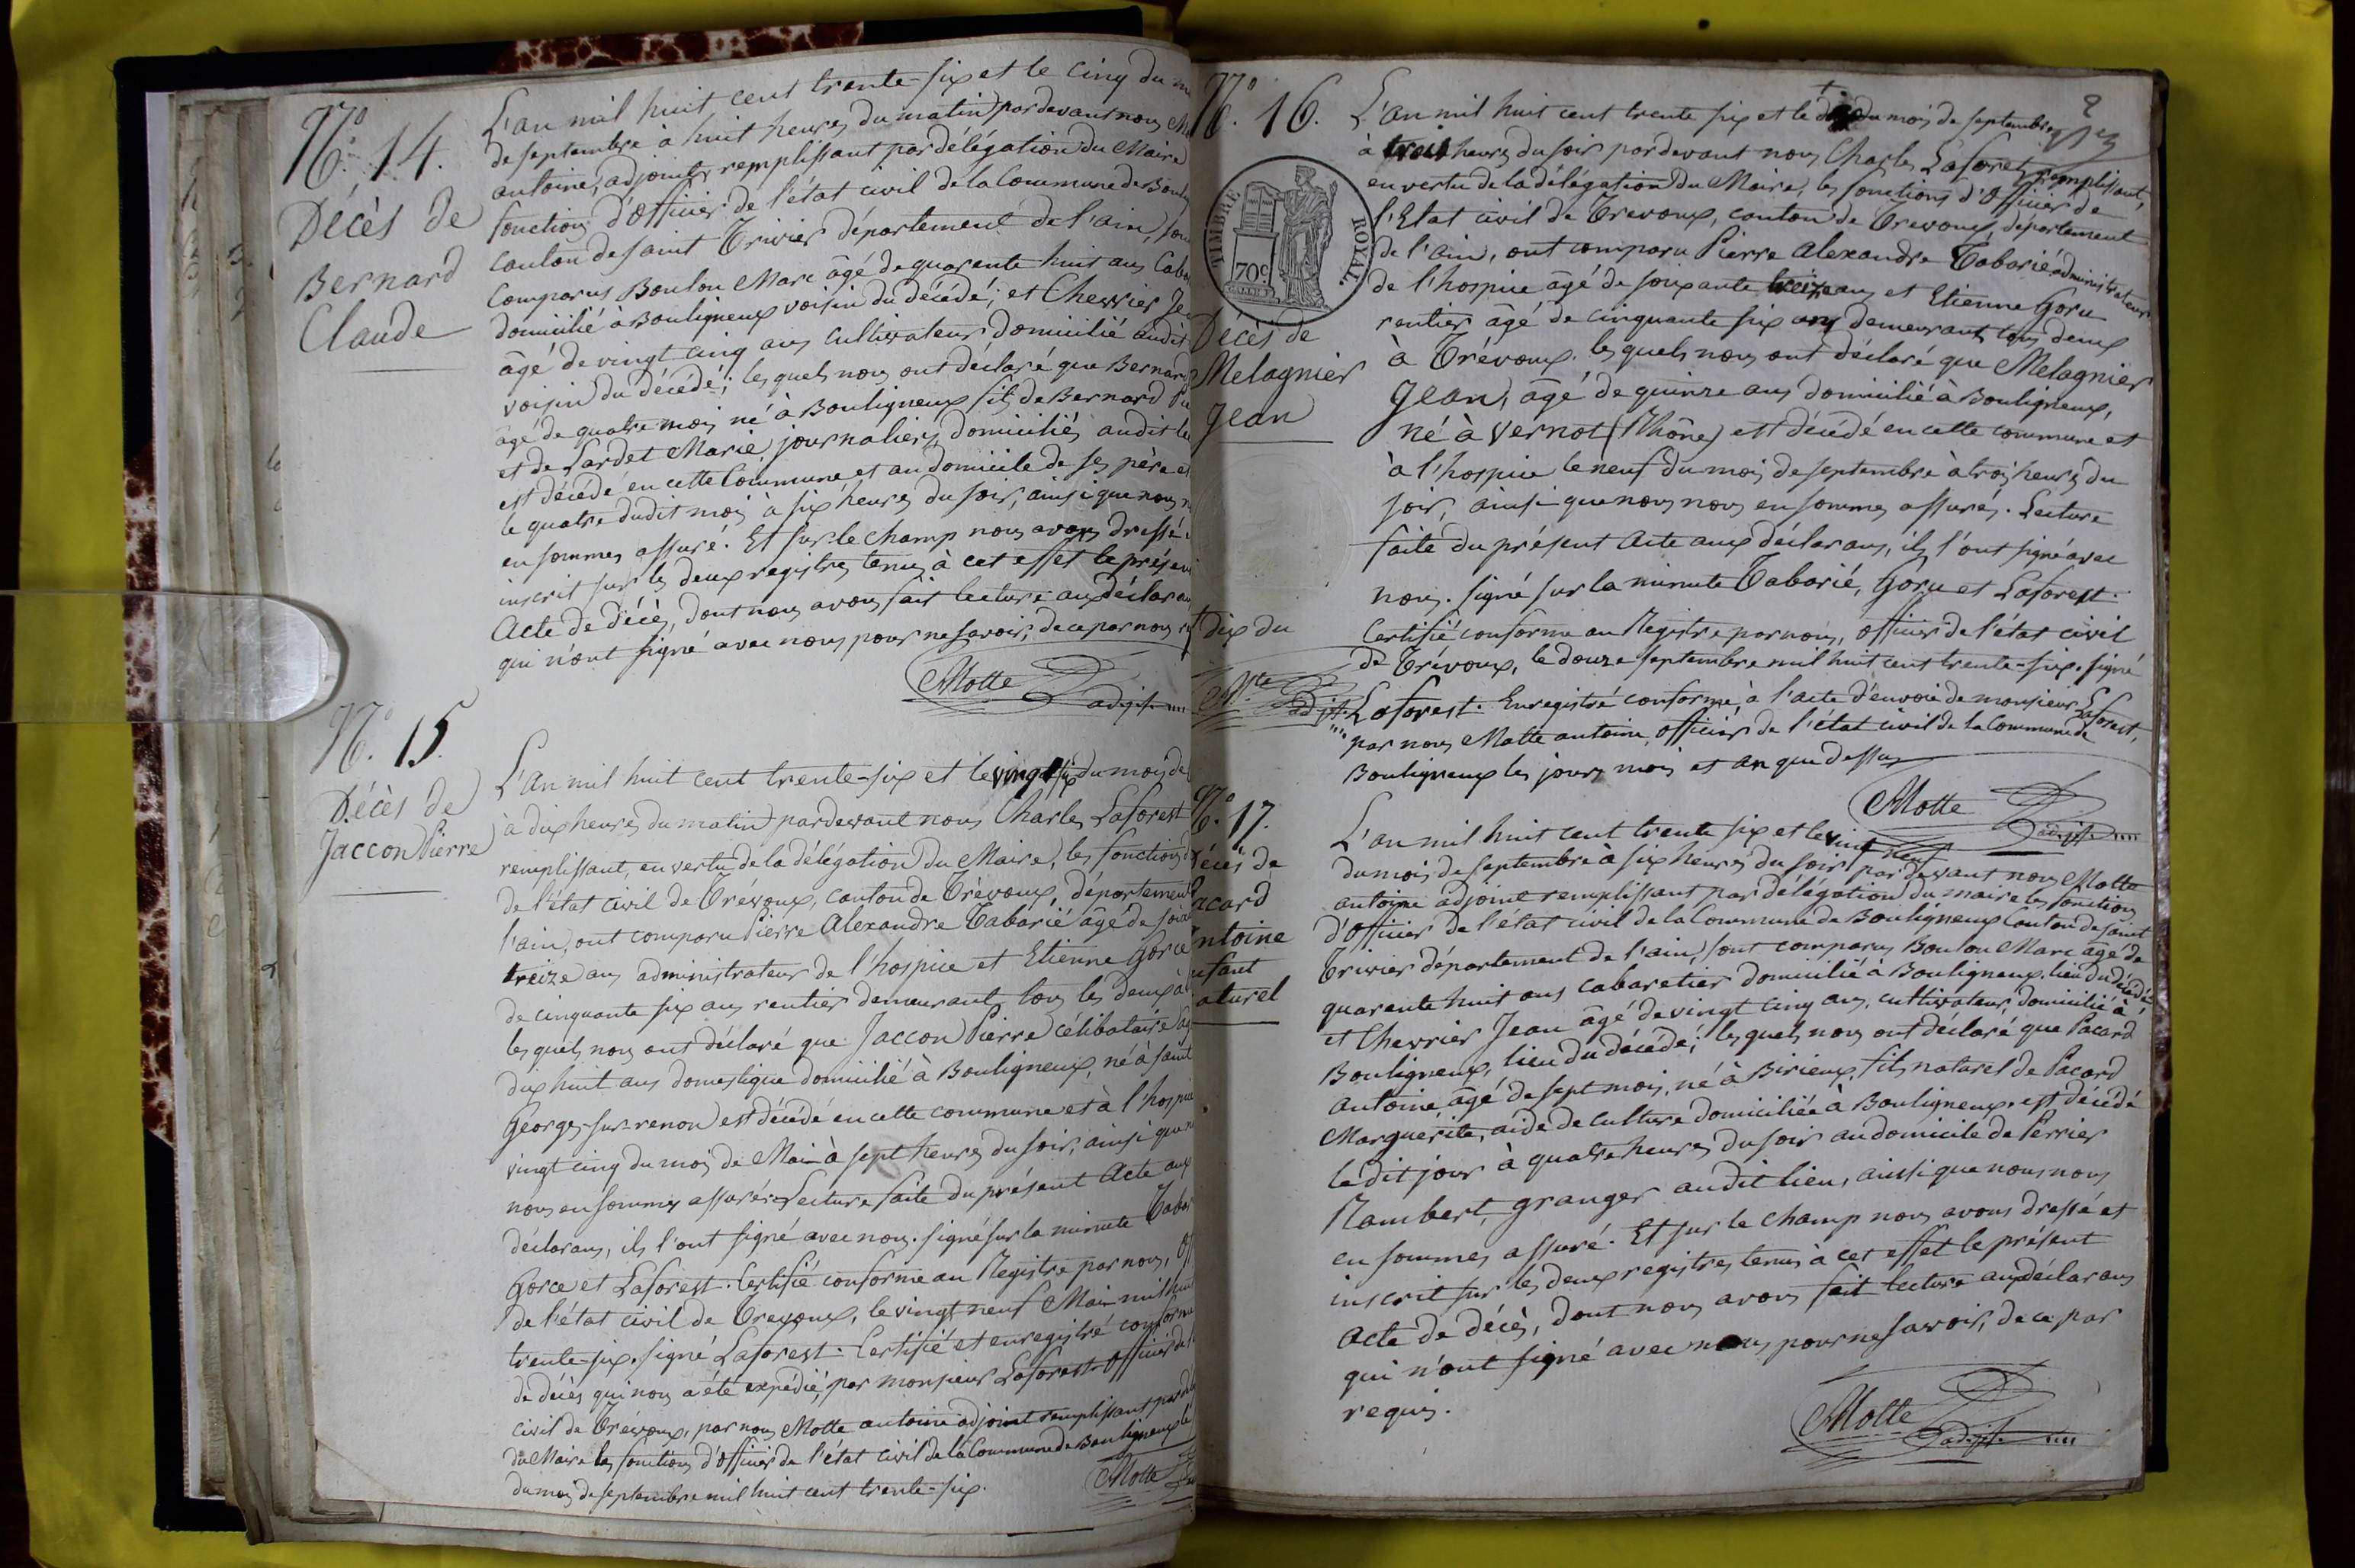 N.o 14.
Décès de
Bernard
Claude
L'an mil huit cent trente-six et le cinq du
de septembre à huit heures du matin pardevant nous
antoine, adjoint remplissant par délégation du Maire
fonctions d'officier de l'état civil de la Commune de
canton de saint Trivier département de l'ain,
Comparus Boulon Marc âgé de quarante huit ans
domicilié à Bouligneux voisin du décédé; et Cherrier
âgé de vingt cinq ans cultivateur domicilié audit
voisin du décédé; lesquels nous ont déclaré que Bernard
âgé de quatre mois né à Bouligneux fils de Bernard
et de Lardet Marie, journaliers, domiciliés audit
est décédé en cette Commune et au domicile de ses père et
le quatre dudit mois à six heures du soir, ainsi que nous
en sommes assuré. Et sur le champ nous avons dressé
inscrit sur les deux registres tenus à cet effet le présent
Acte de décès, dont nous avons fait lecture aux déclarans
qui n'ont signé avec nous pour ne savoir, de ce par nous
Motte
adjt.
N.o 15.
Décès de
Jaccon Pierre
L'an mil huit cent trente-six et le vingt six du mois de
à dix heures du matin pardevant nous Charles Laforest
remplissant, en vertu de la délégation du Maire, les fonctions
de l'état civil de Trévoux, canton de Trévoux, département
l'ain, ont comparu Pierre Alexandre Tabarié âgé de
treize ans administrateur de l'hospice et Etienne Gorce
de cinquante six ans rentier demeurant tous les deux à
lesquels nous ont déclaré que Jaccon Pierre célibataire
dix huit ans domestique domicilié à Bouligneux, né à saint
Georges-sur-renon est décédé en cette commune et à l'hospice
vingt cinq du mois de Mai à sept heures du soir, ainsi que
nous en sommes assurés. Lecture faite du présent Acte aux
déclarans, ils l'ont signé avec nous. signé sur la minute
Gorce et Laforest. Certifié conforme au Registre par nous,
de l'état civil de Trevoux, le vingt neuf Mai mil huit
trente-six. signé Laforest. Certifié et enregistré conforme
de décès qui nous a été expédié, par monsieur Laforest officier de
civil de Trévoux, par nous Motte antoine adjoint remplissant par
du Maire les fonctions d'officier de l'état civil de la Commune de Bouligneux le
du mois de septembre mil huit cent trente-six.
Motte
N.o 16.
TIMBRE ROYAL.
70c
Décès de
Melagnier
Jean
L'an mil huit cent trente six et le du mois de septembre
à trois heures du soir pardevant nous Charles Laforest remplissant,
en vertu de la délégation du Maire, les fonctions d'officier de
l'Etat civil de Trevoux, canton de Trevoux, département
de l'ain, ont comparu Pierre Alexandre Tabarié administrateur
de l'hospice, âgé de soixante treize ans et Etienne Gorce
rentier âgé de cinquante six ans demeurant tous deux
à Trévoux. lesquels nous ont déclaré que Melagnier
Jean, âgé de quinze ans domicilié à Bouligneux,
né à Vernot (Rhône) est décédé en cette commune et
à l'hospice le neuf du mois de septembre à trois heures du
soir, ainsi que nous nous en sommes assurés. Lecture
faite du présent Acte aux déclarans, ils l'ont signé avec
nous. signé sur la minute Tabarié, Gorce et Laforest.
Certifié conforme au Registre par nous, officier de l'état civil
de Trévoux, le douze septembre mil huit cent trente-six. signé
Laforest. Enregistré conforme, à l'acte d'envoie de monsieur Laforest,
par nous Motte antoine, officier de l'état civil de la Commune de
Bouligneux les jours mois et an que dessus
Motte
adjt.
+ dix du
Mtte
adjt.
N.o 17.
Décès de
Pacard
Antoine
enfant
naturel
L'an mil huit cent trente six et le vingt neuf
du mois de septembre à six heures du soir pardevant nous Motte
antoine adjoint remplissant par délégation du maire les fonctions
d'Officier de l'état civil de la Commune de Bouligneux Canton de saint
Trivier département de l'ain, sont comparus Boulon Marc âgé de
quarante huit ans cabaretier domicilié à Bouligneux, lieu du décédé,
et Cherrier Jean âgé de vingt cinq ans, cultivateur, domicilié à
Bouligneux, lieu du décédé; lesquels nous ont déclaré que Pacard
Antoine, âgé de sept mois, né à Birieux, fils naturel de Pacard
Marguerite, aide de culture domiciliée à Bouligneux, est décédé
ledit jour à quatre heures du soir au domicile de Perrier
Rambert, granger audit lieu, ainsi que nous nous
en sommes assuré. Et sur le champ nous avons dressé et
inscrit sur les deux registres tenus à cet effet le présent
acte de décès, dont nous avons fait lecture aux déclarans
qui n'ont signé avec nous pour ne savoir, de ce par
requis.
Motte
adjt.